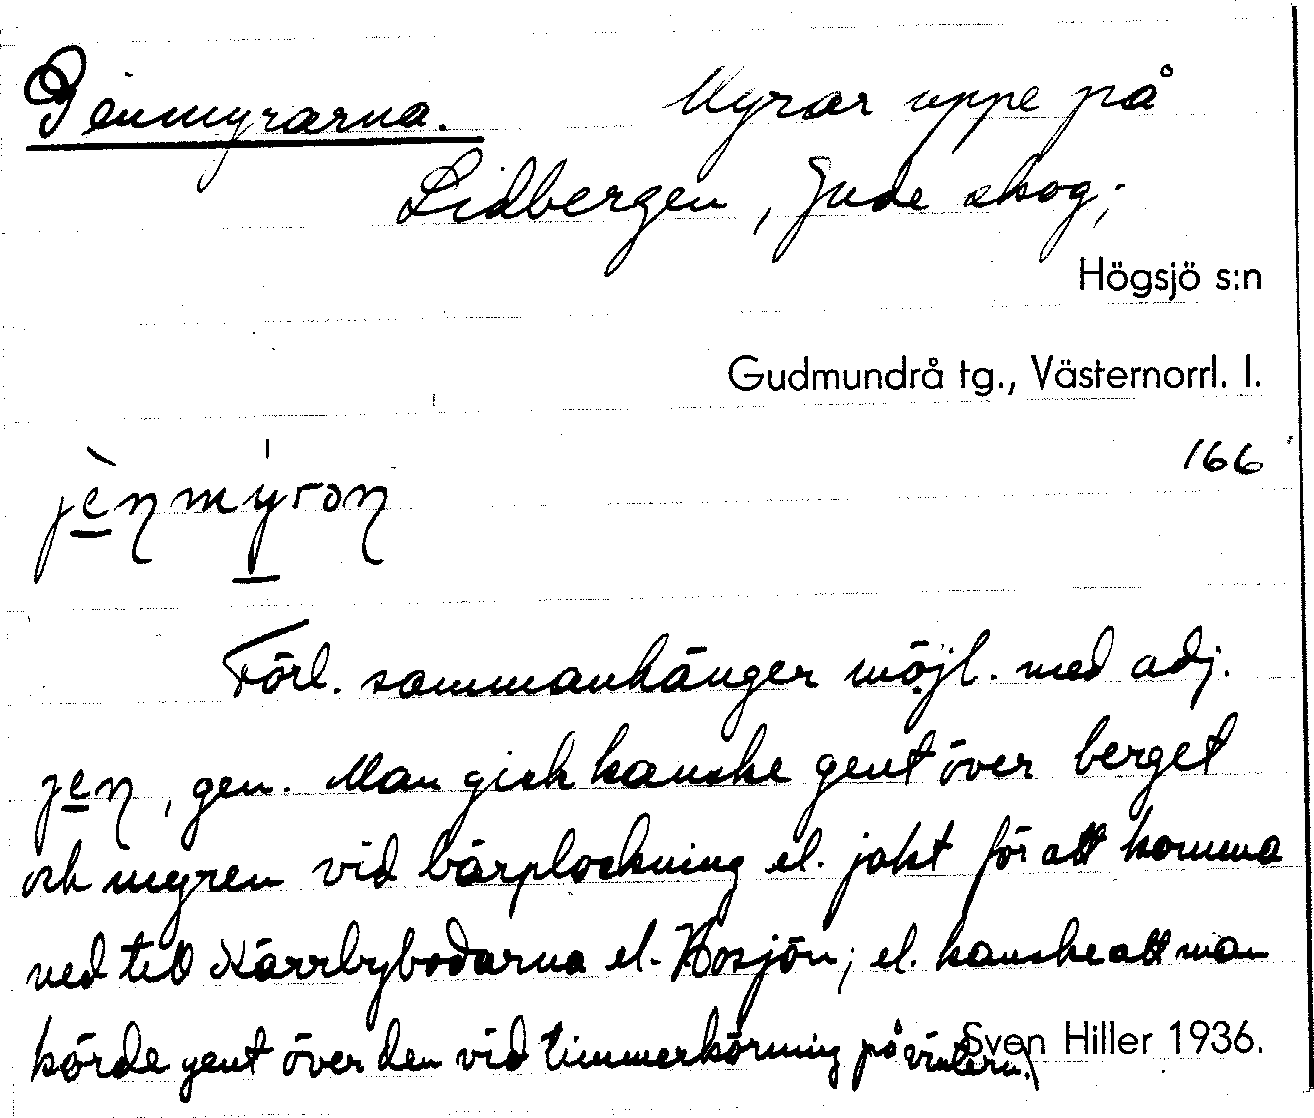 Genmyrarna. Myrar uppe på
Lidbergen, Gude skog;
Högsjö s:n
Gudmundrå tg., Västernorrl. l.
166
jènmýron
Förl. sammanhänger möjl. med adj.
jen, gen. Man gick kanske gent över berget
och myren vid bärplockning el. jakt för att komma
ned till Kärrbybodarna el. Kosjön; el. kanske att man
körde gent över den vid timmerkörning på vintern.
Sven Hiller 1936.